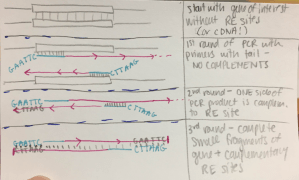 start with gene of interest
without RE sites
(or cDNA!)
1st round of PCR with
primers with tail -
NO COMPLEMENTS
GAATTC
CTTAAG
2nd round - one side of
PCR product is complem.
to RE site
GAATTC
CTTAAG
CTTAAG
3rd round - complete
small fragments of
gene + complementary
RE sites
GAATTC
GAATTC
CTTAAG
CTTAAG